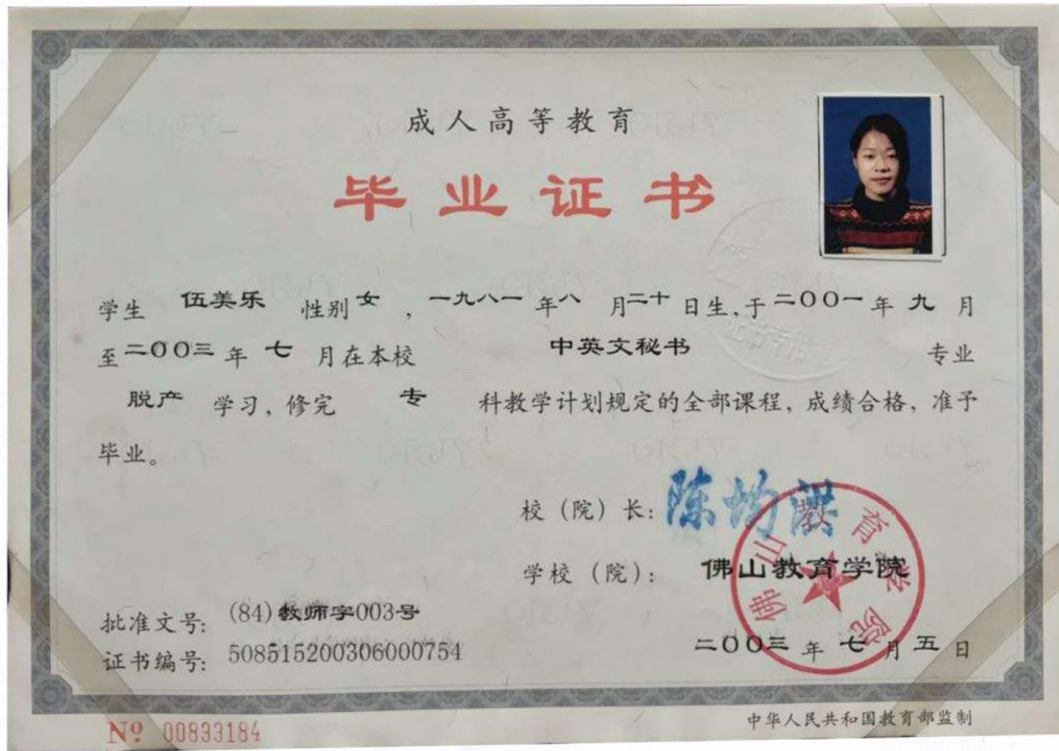 成人高等教育
毕业证书
学生 伍美乐 性别 女 , 一九八一 年 八 月 二十 日生, 于 二00一 年 九 月
至 二00三 年 七 月在本校 中英文秘书 专业
脱产 学习, 修完 专 科教学计划规定的全部课程, 成绩合格, 准予
毕业。
校 (院) 长: 陈均洪
学校 (院): 佛山教育学院
佛山教育学院
批准文号: (84) 教师字003号
证书编号: 508515200306000754
二00三 年 七 月 五 日
Nº 00833184
中华人民共和国教育部监制